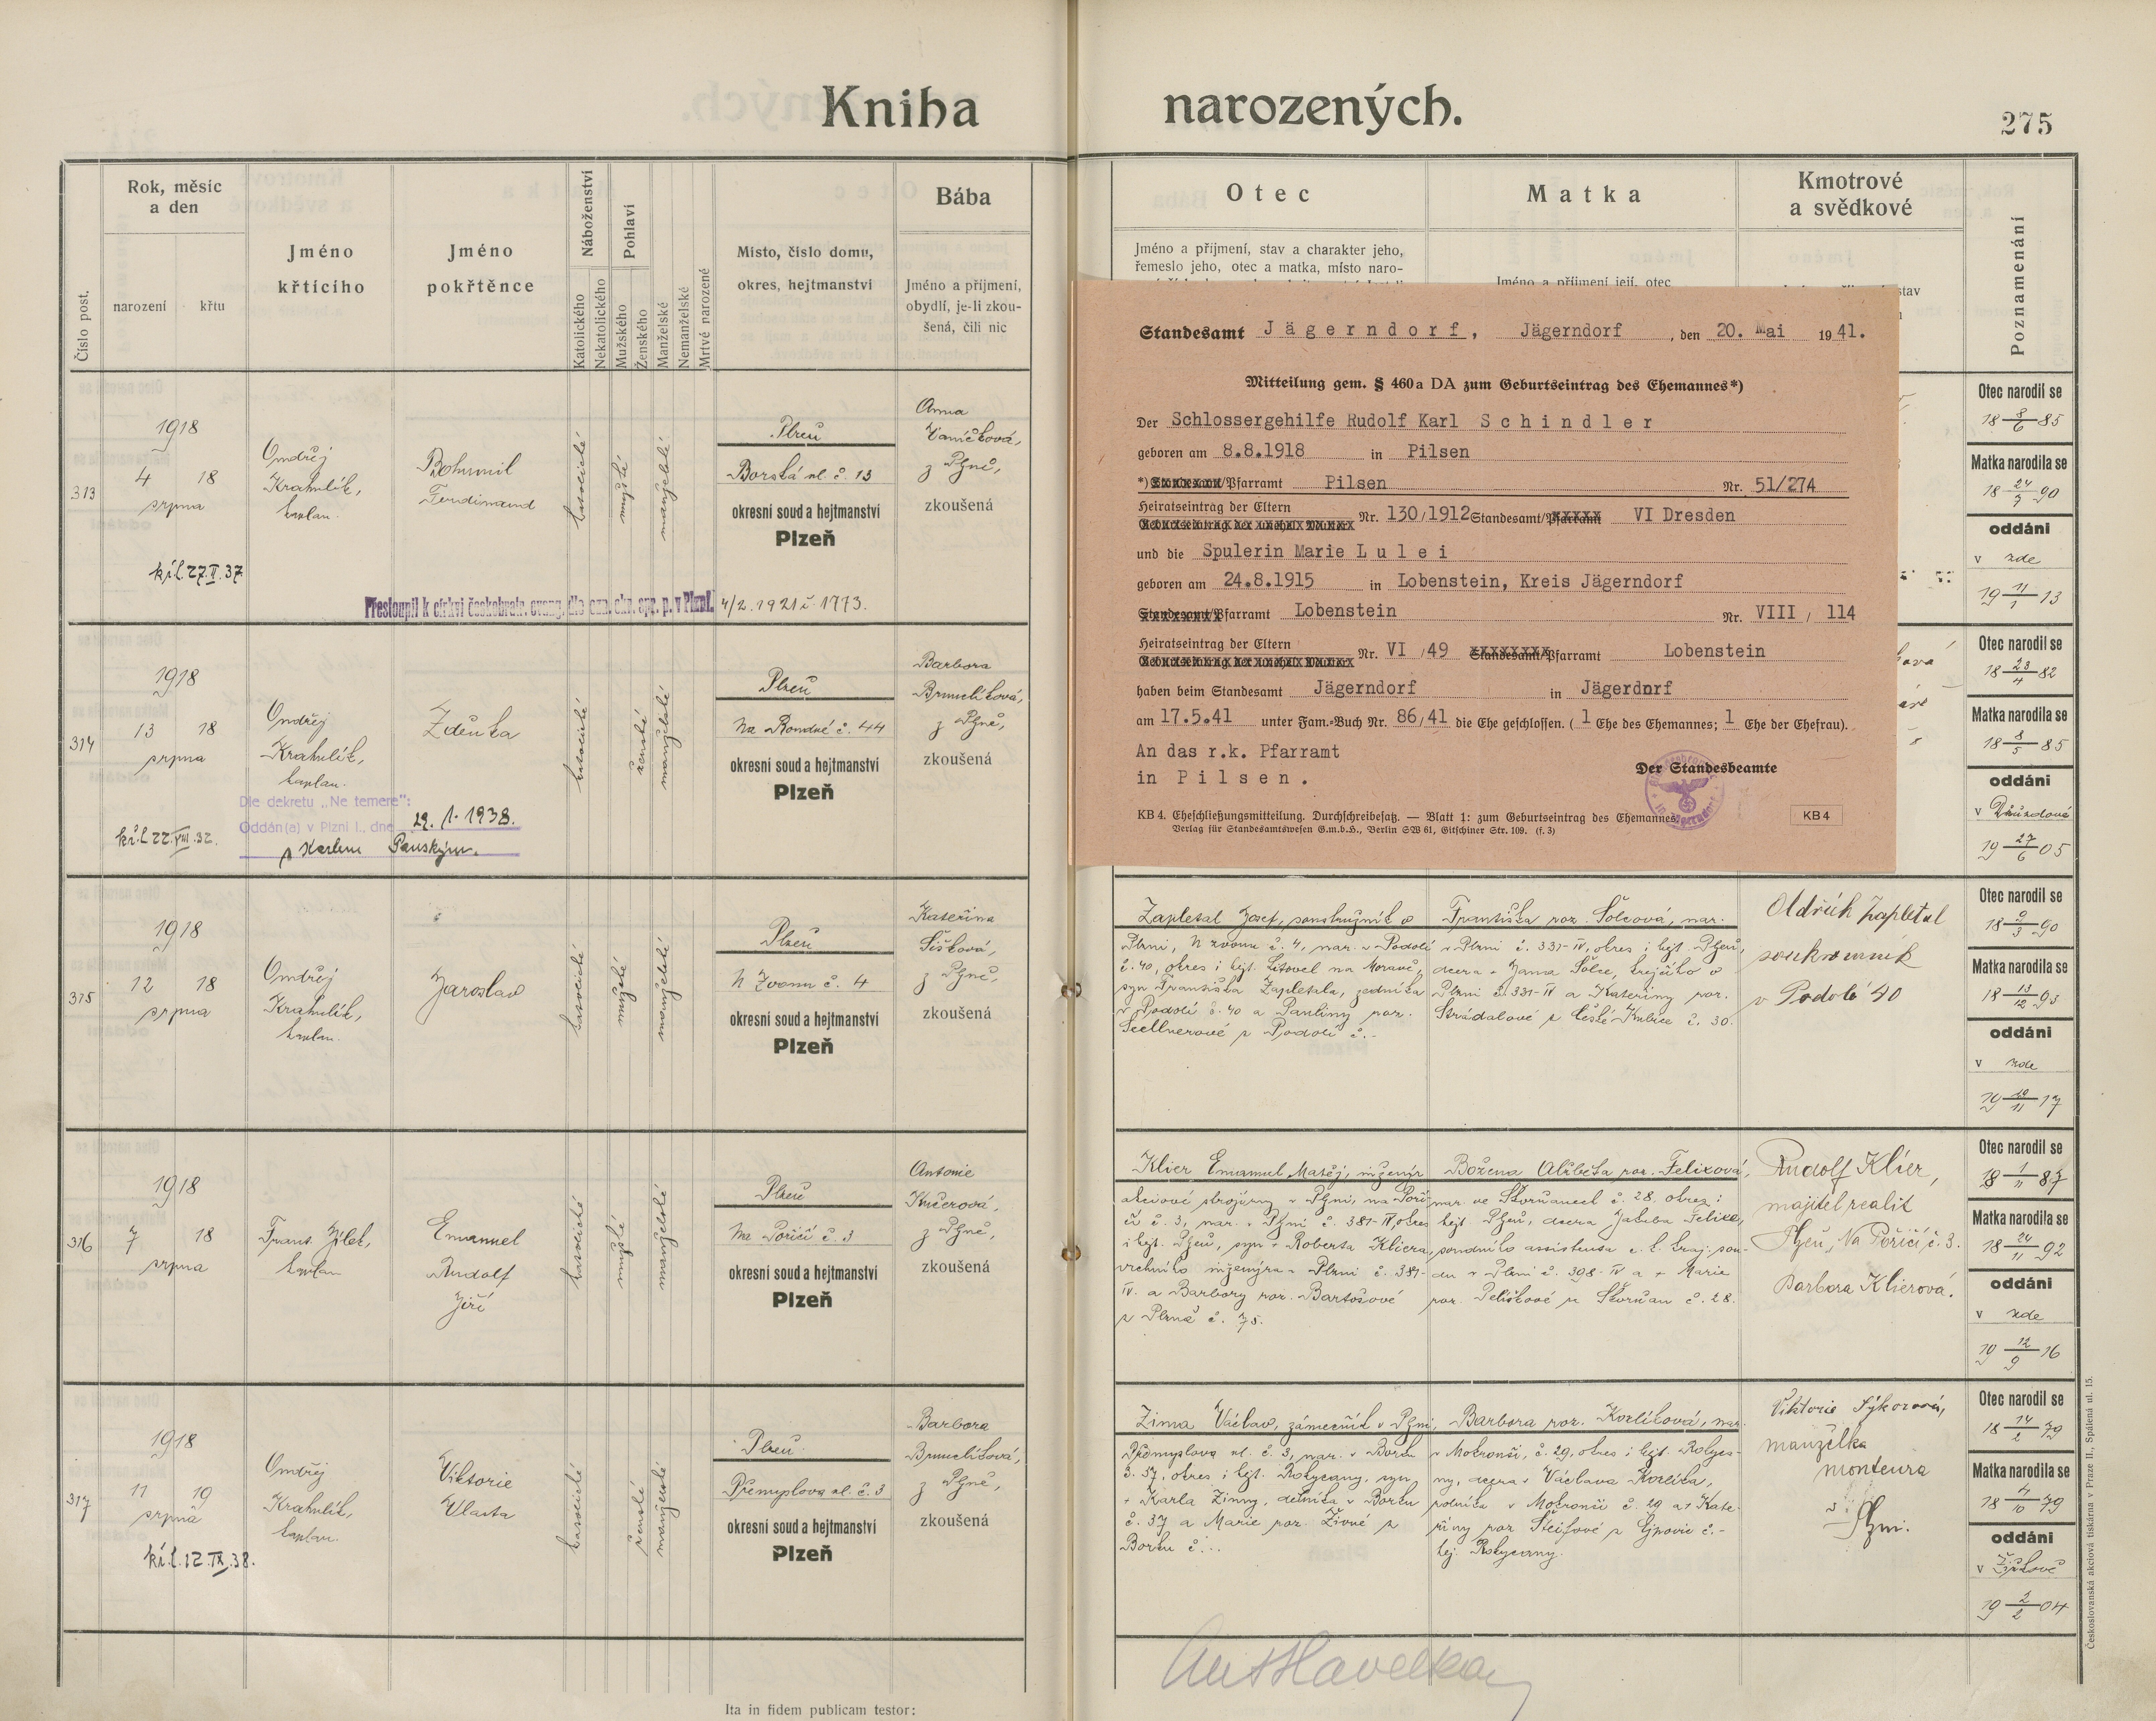 Kniha narozených.
275
Číslo post.
Rok, měsíc
a den
narození
křtu
Jméno
křtícího
Jméno
pokřtěnce
Náboženství
Katolického
Nekatolického
Pohlaví
Mužského
Ženského
Manželské
Nemanželské
Mrtvě narozené
Místo, číslo domu,
okres, hejtmanství
Bába
Jméno a příjmení,
obydlí, je-li zkou-
šená, čili nic
Otec
Jméno a příjmení, stav a charakter jeho,
řemeslo jeho, otec a matka, místo naro-
Matka
Jméno a příjmení její, otec
Kmotrové
a svědkové
stav
Poznamenání
313
1918
4 18
srpna
kř.l. 27.II.37
Ondřej
Krahulík,
kaplan.
Bohumil
Ferdinand
katolické
mužské
manželské
Plzeň
Borská ul. č. 13
okresní soud a hejtmanství
Plzeň
Anna
Vaníčková,
z Plzně,
zkoušená
Přestoupil k církvi českobratr. evang. dle ozn. okr. spr. p. v Plzni. 4/2. 1921 č. 1773.
Otec narodil se
18 8/6 85
Matka narodila se
18 24/7 90
oddáni
v zde
19 11/1 13
314
1918
13 18
srpna
kř.l. 22.VIII.32.
Ondřej
Krahulík,
kaplan.
Zdeňka
Dle dekretu „Ne temere":
Oddán(a) v Plzni I., dne 29. 1. 1938.
s Karlem Panským.
katolické
ženské
manželské
Plzeň
Na Rondně č. 44
okresní soud a hejtmanství
Plzeň
Barbora
Brunclíková,
z Plzně,
zkoušená
Otec narodil se
18 23/4 82
Matka narodila se
18 8/5 85
oddáni
v
19 27/6 05
Standesamt Jägerndorf, Jägerndorf, den 20. Mai 1941.
Mitteilung gem. § 460a DA zum Geburtseintrag des Ehemannes*)
Der Schlossergehilfe Rudolf Karl Schindler
geboren am 8.8.1918 in Pilsen
*) Standesamt/Pfarramt Pilsen Nr. 51/274
Heiratseintrag der Eltern
Geburtseintrag der unehel. Mutter Nr. 130/1912 Standesamt/Pfarramt VI Dresden
und die Spulerin Marie Lulei
geboren am 24.8.1915 in Lobenstein, Kreis Jägerndorf
Standesamt/Pfarramt Lobenstein Nr. VIII / 114
Heiratseintrag der Eltern
Geburtseintrag der unehel. Mutter Nr. VI / 49 Standesamt/Pfarramt Lobenstein
haben beim Standesamt Jägerndorf in Jägerdnrf
am 17.5.41 unter Fam.-Buch Nr. 86/41 die Ehe geschlossen. (1 Ehe des Ehemannes; 1 Ehe der Ehefrau).
An das r.k. Pfarramt
in Pilsen.
Der Standesbeamte
KB 4. Eheschließungsmitteilung. Durchschreibesatz. — Blatt 1: zum Geburtseintrag des Ehemannes.
Verlag für Standesamtswesen G.m.b.H., Berlin SW 61, Gitschiner Str. 109. (f. 3)
KB 4
315
1918
12 18
srpna
Ondřej
Krahulík,
kaplan.
Jaroslav
katolické
mužské
manželské
Plzeň
U Zvonu č. 4
okresní soud a hejtmanství
Plzeň
Kateřina
Šišková,
z Plzně,
zkoušená
Zapletal Josef, soustružník v
Plzni, U zvonu č. 4, nar. v Podolí
č. 40, okres i hejt. Litovel na Moravě,
syn Františka Zapletala, zedníka
v Podolí č. 40 a Pauliny roz.
Scellnerové z Podolí č. -
Františka roz. Šolcová, nar.
v Plzni č. 331-IV, okres i hejt. Plzeň,
dcera + Jana Šolce, krejčího v
Plzni č. 331-IV a Kateřiny roz.
Strádalové z České Kubice č. 30.
Oldřich Zapletal
soukromník
v Podolí 40
Otec narodil se
18 9/3 90
Matka narodila se
18 13/12 93
oddáni
v zde
19 10/11 17
316
1918
7 18
srpna
Frant. Jílek,
kaplan
Emanuel
Rudolf
Jiří
katolické
mužské
manželské
Plzeň
Na Poříčí č. 3
okresní soud a hejtmanství
Plzeň
Antonie
Kučerová,
z Plzně,
zkoušená
Klier Emanuel Matěj, inženýr
akciové strojírny v Plzni, na Poří-
čí č. 3, nar. v Plzni č. 381-IV, okres
i hejt. Plzeň, syn + Roberta Kliera,
vrchního inženýra v Plzni č. 381-
IV. a Barbory roz. Bartošové
z Plzně č. 75.
Božena Alžběta roz. Felixová,
nar. ve Štěnovicích č. 28. okres i
hejt. Plzeň, dcera Jakuba Felixe,
soudního assistenta c. k. kraj. sou-
du v Plzni č. 398-IV a + Marie
roz. Peliškové ze Štěnovic č. 28.
Rudolf Klier,
majitel realit
Plzeň, Na Poříčí č. 3.
Barbora Klierová.
Otec narodil se
18 1/11 87
Matka narodila se
18 24/11 92
oddáni
v zde
19 12/9 16
317
1918
11 19
srpna
kř.l. 12.IX.38.
Ondřej
Krahulík,
kaplan.
Viktorie
Vlasta
katolické
ženské
manželské
Plzeň
Přemyslova ul. č. 3
okresní soud a hejtmanství
Plzeň
Barbora
Brunclíková,
z Plzně,
zkoušená
Zima Václav, zámečník v Plzni,
Přemyslova ul. č. 3, nar. v Borku
č. 37, okres i hejt. Rokycany, syn
+ Karla Zimy, dělníka v Borku
č. 37 a Marie roz. Živné z
Borku č. -.
Barbora roz. Korlíková, nar.
v Mokrouši, č. 29, okres i hejt. Rokyca-
ny, dcera + Václava Korlíka,
rolníka v Mokrouši č. 29 a + Kate-
řiny roz. z Ejpovic č. -
hej. Rokycany.
Viktorie Sýkorová,
manželka
monteura
v Plzni.
Otec narodil se
18 14/2 79
Matka narodila se
18 4/10 79
oddáni
v
19 2/2 04
Ita in fidem publicam testor:
Československá akciová tiskárna v Praze II., Spálená ul. 15.